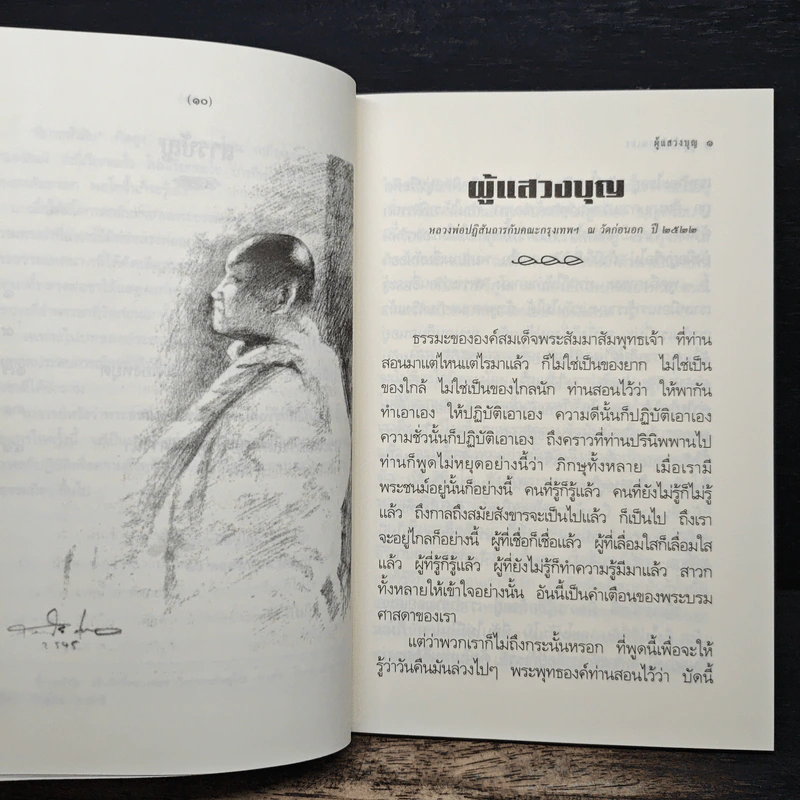 (๑๐)
๒๕๔๕
ผู้แสวงบุญ ๑
ผู้แสวงบุญ
หลวงพ่อปฏิสันถารกับคณะกรุงเทพฯ ณ วัดก่อนอก ปี ๒๕๒๒
ธรรมะขององค์สมเด็จพระสัมมาสัมพุทธเจ้า ที่ท่าน
สอนมาแต่ไหนแต่ไรมาแล้ว ก็ไม่ใช่เป็นของยาก ไม่ใช่เป็น
ของใกล้ ไม่ใช่เป็นของไกลนัก ท่านสอนไว้ว่า ให้พากัน
ทำเอาเอง ให้ปฏิบัติเอาเอง ความดีนั้นก็ปฏิบัติเอาเอง
ความชั่วนั้นก็ปฏิบัติเอาเอง ถึงคราวที่ท่านปรินิพพานไป
ท่านก็พูดไม่หยุดอย่างนี้ว่า ภิกษุทั้งหลาย เมื่อเรามี
พระชนม์อยู่นั้นก็อย่างนี้ คนที่รู้ก็รู้แล้ว คนที่ยังไม่รู้ก็ไม่รู้
แล้ว ถึงกาลถึงสมัยสังขารจะเป็นไปแล้ว ก็เป็นไป ถึงเรา
จะอยู่ไกลก็อย่างนี้ ผู้ที่เชื่อก็เชื่อแล้ว ผู้ที่เลื่อมใสก็เลื่อมใส
แล้ว ผู้ที่รู้ก็รู้แล้ว ผู้ที่ยังไม่รู้ก็ทำความรู้มีมาแล้ว สาวก
ทั้งหลายให้เข้าใจอย่างนั้น อันนี้เป็นคำเตือนของพระบรม
ศาสดาของเรา
แต่ว่าพวกเราก็ไม่ถึงกระนั้นหรอก ที่พูดนี้เพื่อจะให้
รู้ว่าวันคืนมันล่วงไปๆ พระพุทธองค์ท่านสอนไว้ว่า บัดนี้